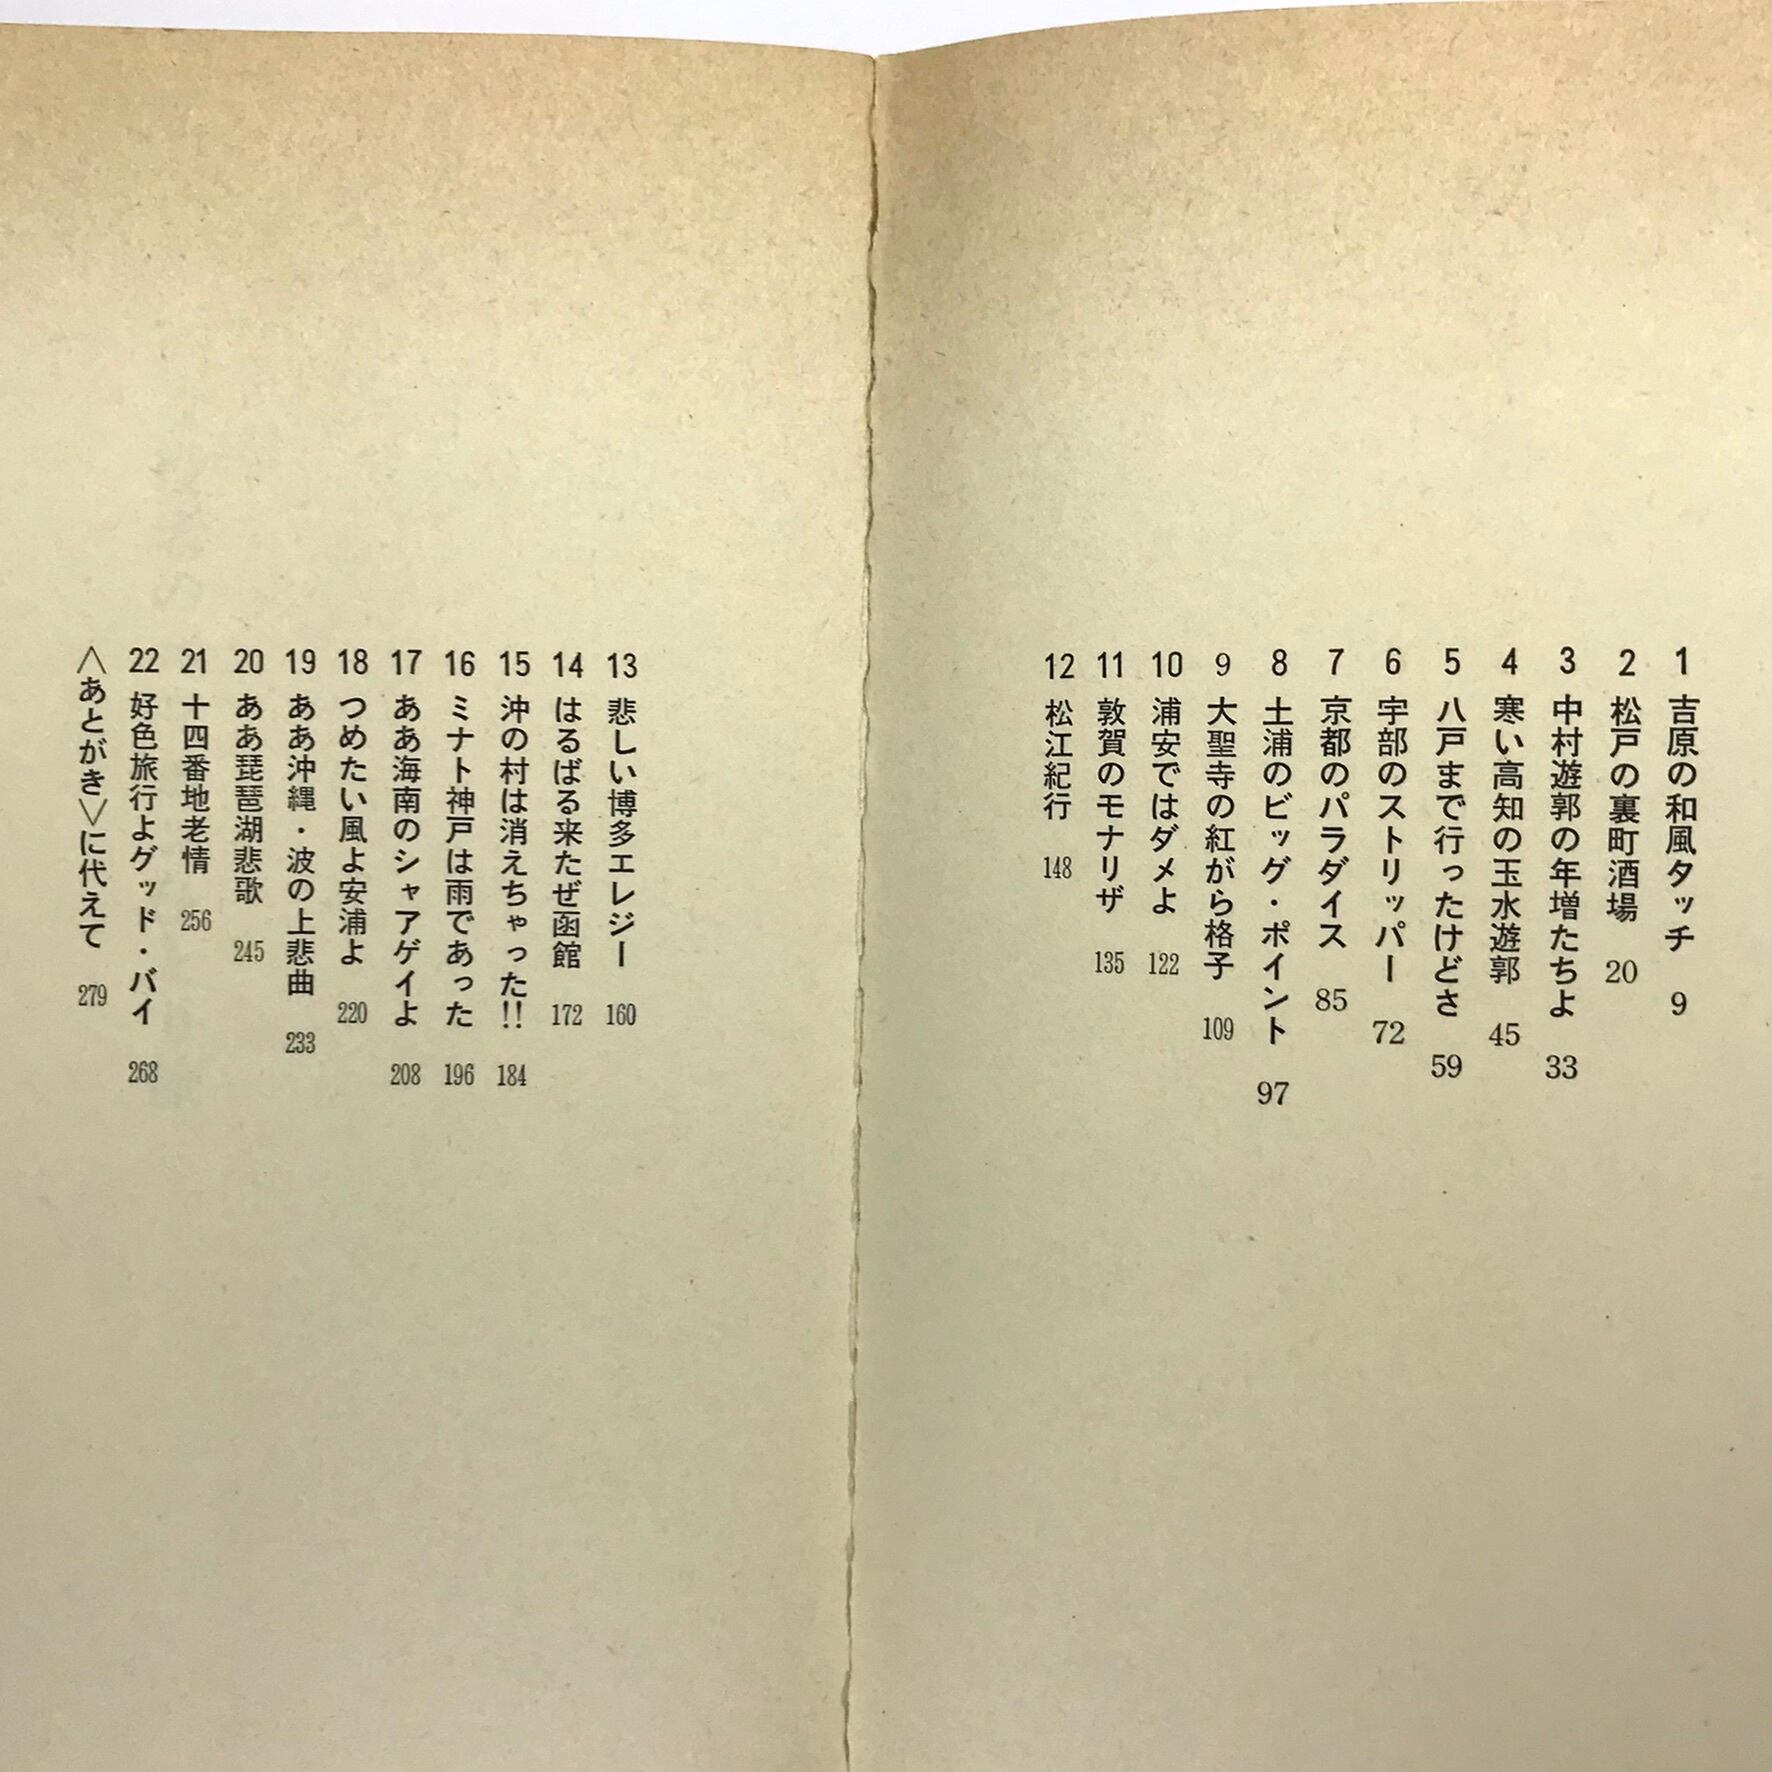 1 吉原の和風タッチ 9
2 松戸の裏町酒場 20
3 中村遊郭の年増たちよ 33
4 寒い高知の玉水遊郭 45
5 八戸まで行ったけどさ 59
6 宇部のストリッパー 72
7 京都のパラダイス 85
8 土浦のビッグ・ポイント 97
9 大聖寺の紅がら格子 109
10 浦安ではダメよ 122
11 敦賀のモナリザ 135
12 松江紀行 148
13 悲しい博多エレジー 160
14 はるばる来たぜ函館 172
15 沖の村は消えちゃった!! 184
16 ミナト神戸は雨であった 196
17 ああ海南のシャアゲイよ 208
18 つめたい風よ安浦よ 220
19 ああ沖縄・波の上悲曲 233
20 ああ琵琶湖悲歌 245
21 十四番地老情 256
22 好色旅行よグッド・バイ 268
〈あとがき〉に代えて 279